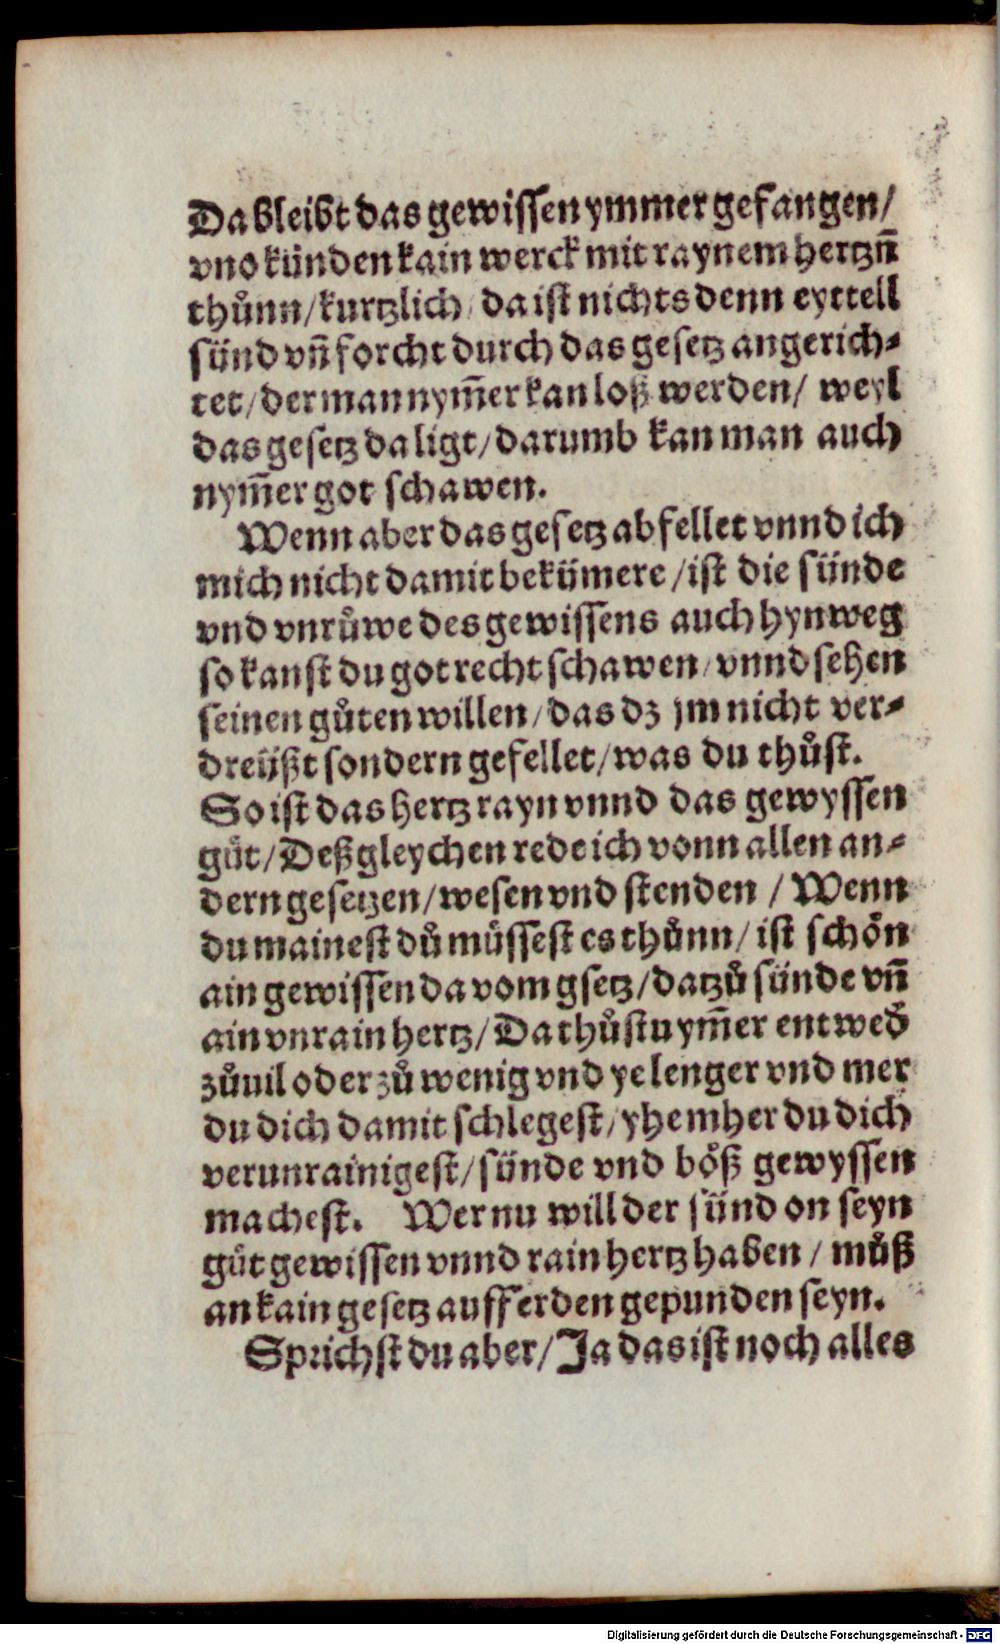 Da bleibt das gewissen ymmer gefangen/
vnd künden kain werck mit raynem hertzñ
thůnn/kurtzlich/ da ist nichts denn eyttell
sünd vñ forcht durch das gesetz angerich-
tet/der man nym̃er kan loß werden/ weyl
das gesetz da ligt/darumb kan man auch
nym̃er got schawen.
Wenn aber das gesetz abfellet vnnd ich
mich nicht damit bekümere/ist die sünde
vnd vnrůwe des gewissens auch hynweg
so kanst du got recht schawen/vnnd sehen
seinen gůten willen/das dz jm nicht ver-
dreüßt sondern gefellet/was du thůst.
So ist das hertz rayn vnnd das gewyssen
gůt/Deßgleychen rede ich vonn allen an-
dern gesetzen/wesen vnd stenden / Wenn
du mainest dů müssest es thůnn/ist schön
ain gewissen da vom gsetz/datzů sünde vñ
ain vnrain hertz/Da thůstu ym̃er entwed̾
zůuil oder zů wenig vnd ye lenger vnd mer
du dich damit schlegest/yhe mher du dich
verunrainigest/sünde vnd böß gewyssen
machest. Wer nu will der sünd on seyn
gůt gewissen vnnd rain hertz haben / můß
an kain gesetz auff erden gepunden seyn.
Sprichst du aber/Ja das ist noch alles
Digitalisierung gefördert durch die Deutsche Forschungsgemeinschaft - DFG